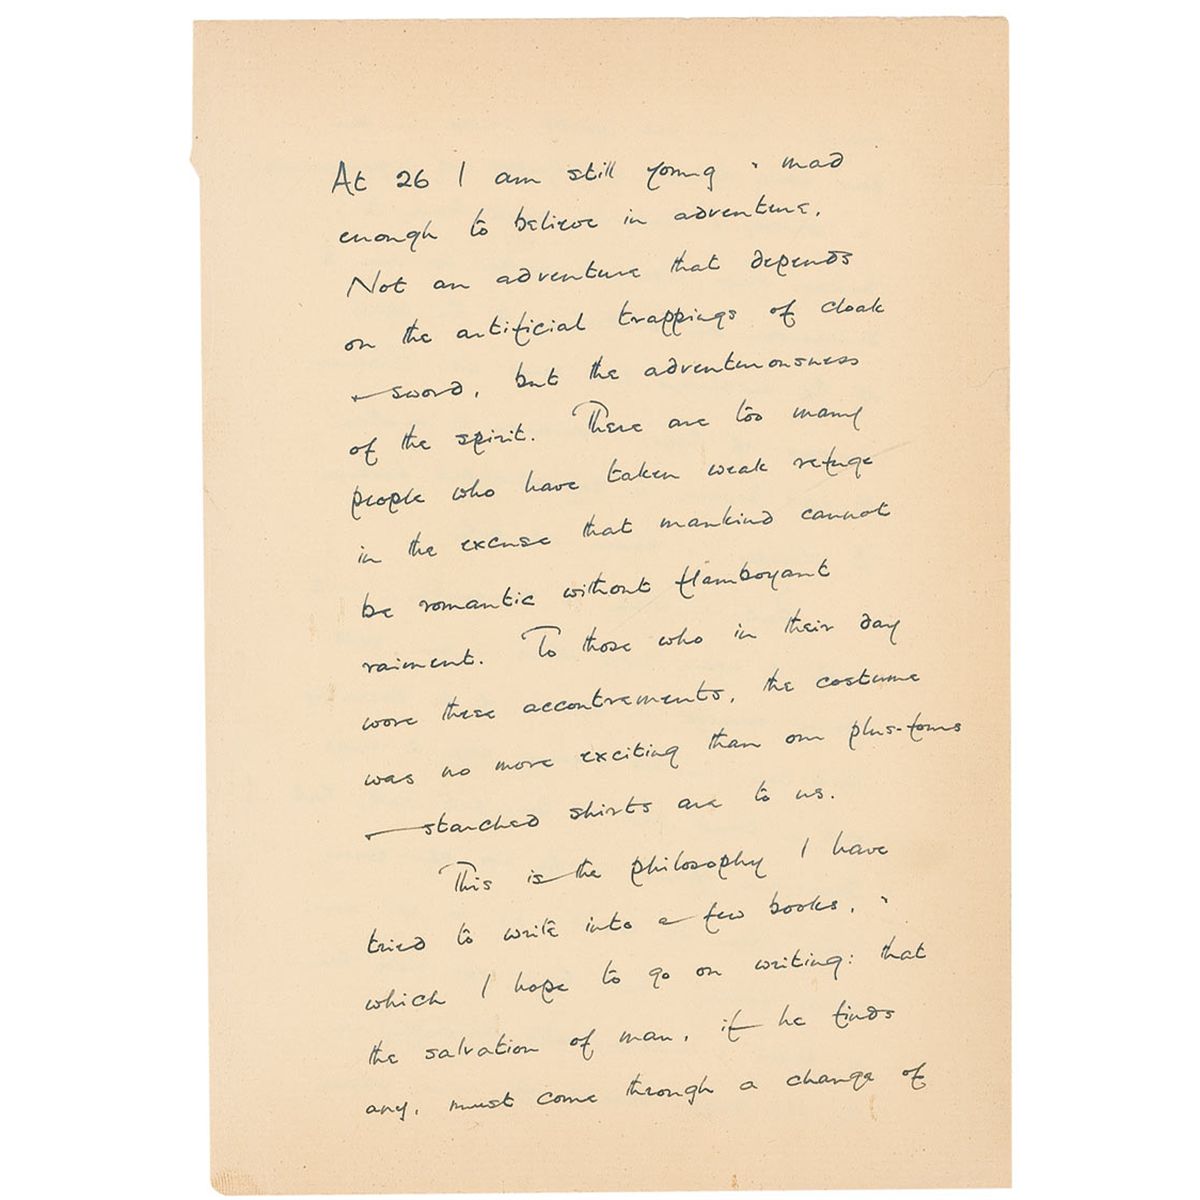 At 26 I am still young & mad
enough to believe in adventure.
Not an adventure that depends
on the artificial trappings of cloak
& sword, but the adventurousness
of the spirit. There are too many
people who have taken weak refuge
in the excuse that mankind cannot
be romantic without flamboyant
raiment. To those who in their day
wore these accoutrements, the costume
was no more exciting than our plus-fours
& starched shirts are to us.
This is the philosophy I have
tried to write into a few books, &
which I hope to go on writing: that
the salvation of man, if he finds
any, must come through a change of